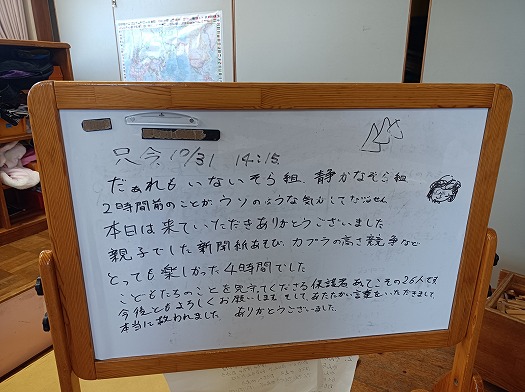 只今、10/31 14:15
だぁれもいないそら組、静かなそら組
2時間前のことがウソのような気がしてなりません
本日は来ていただきありがとうございました
親子でした新聞紙あそび、カプラの高さ競争など
とっても楽しかった4時間でした
こどもたちのことを見守てくださる保護者あてこその26人です
今後ともよろしくお願いします。そして、あたたかい言葉をいただきまして、
本当に救われました ありがとうございました。